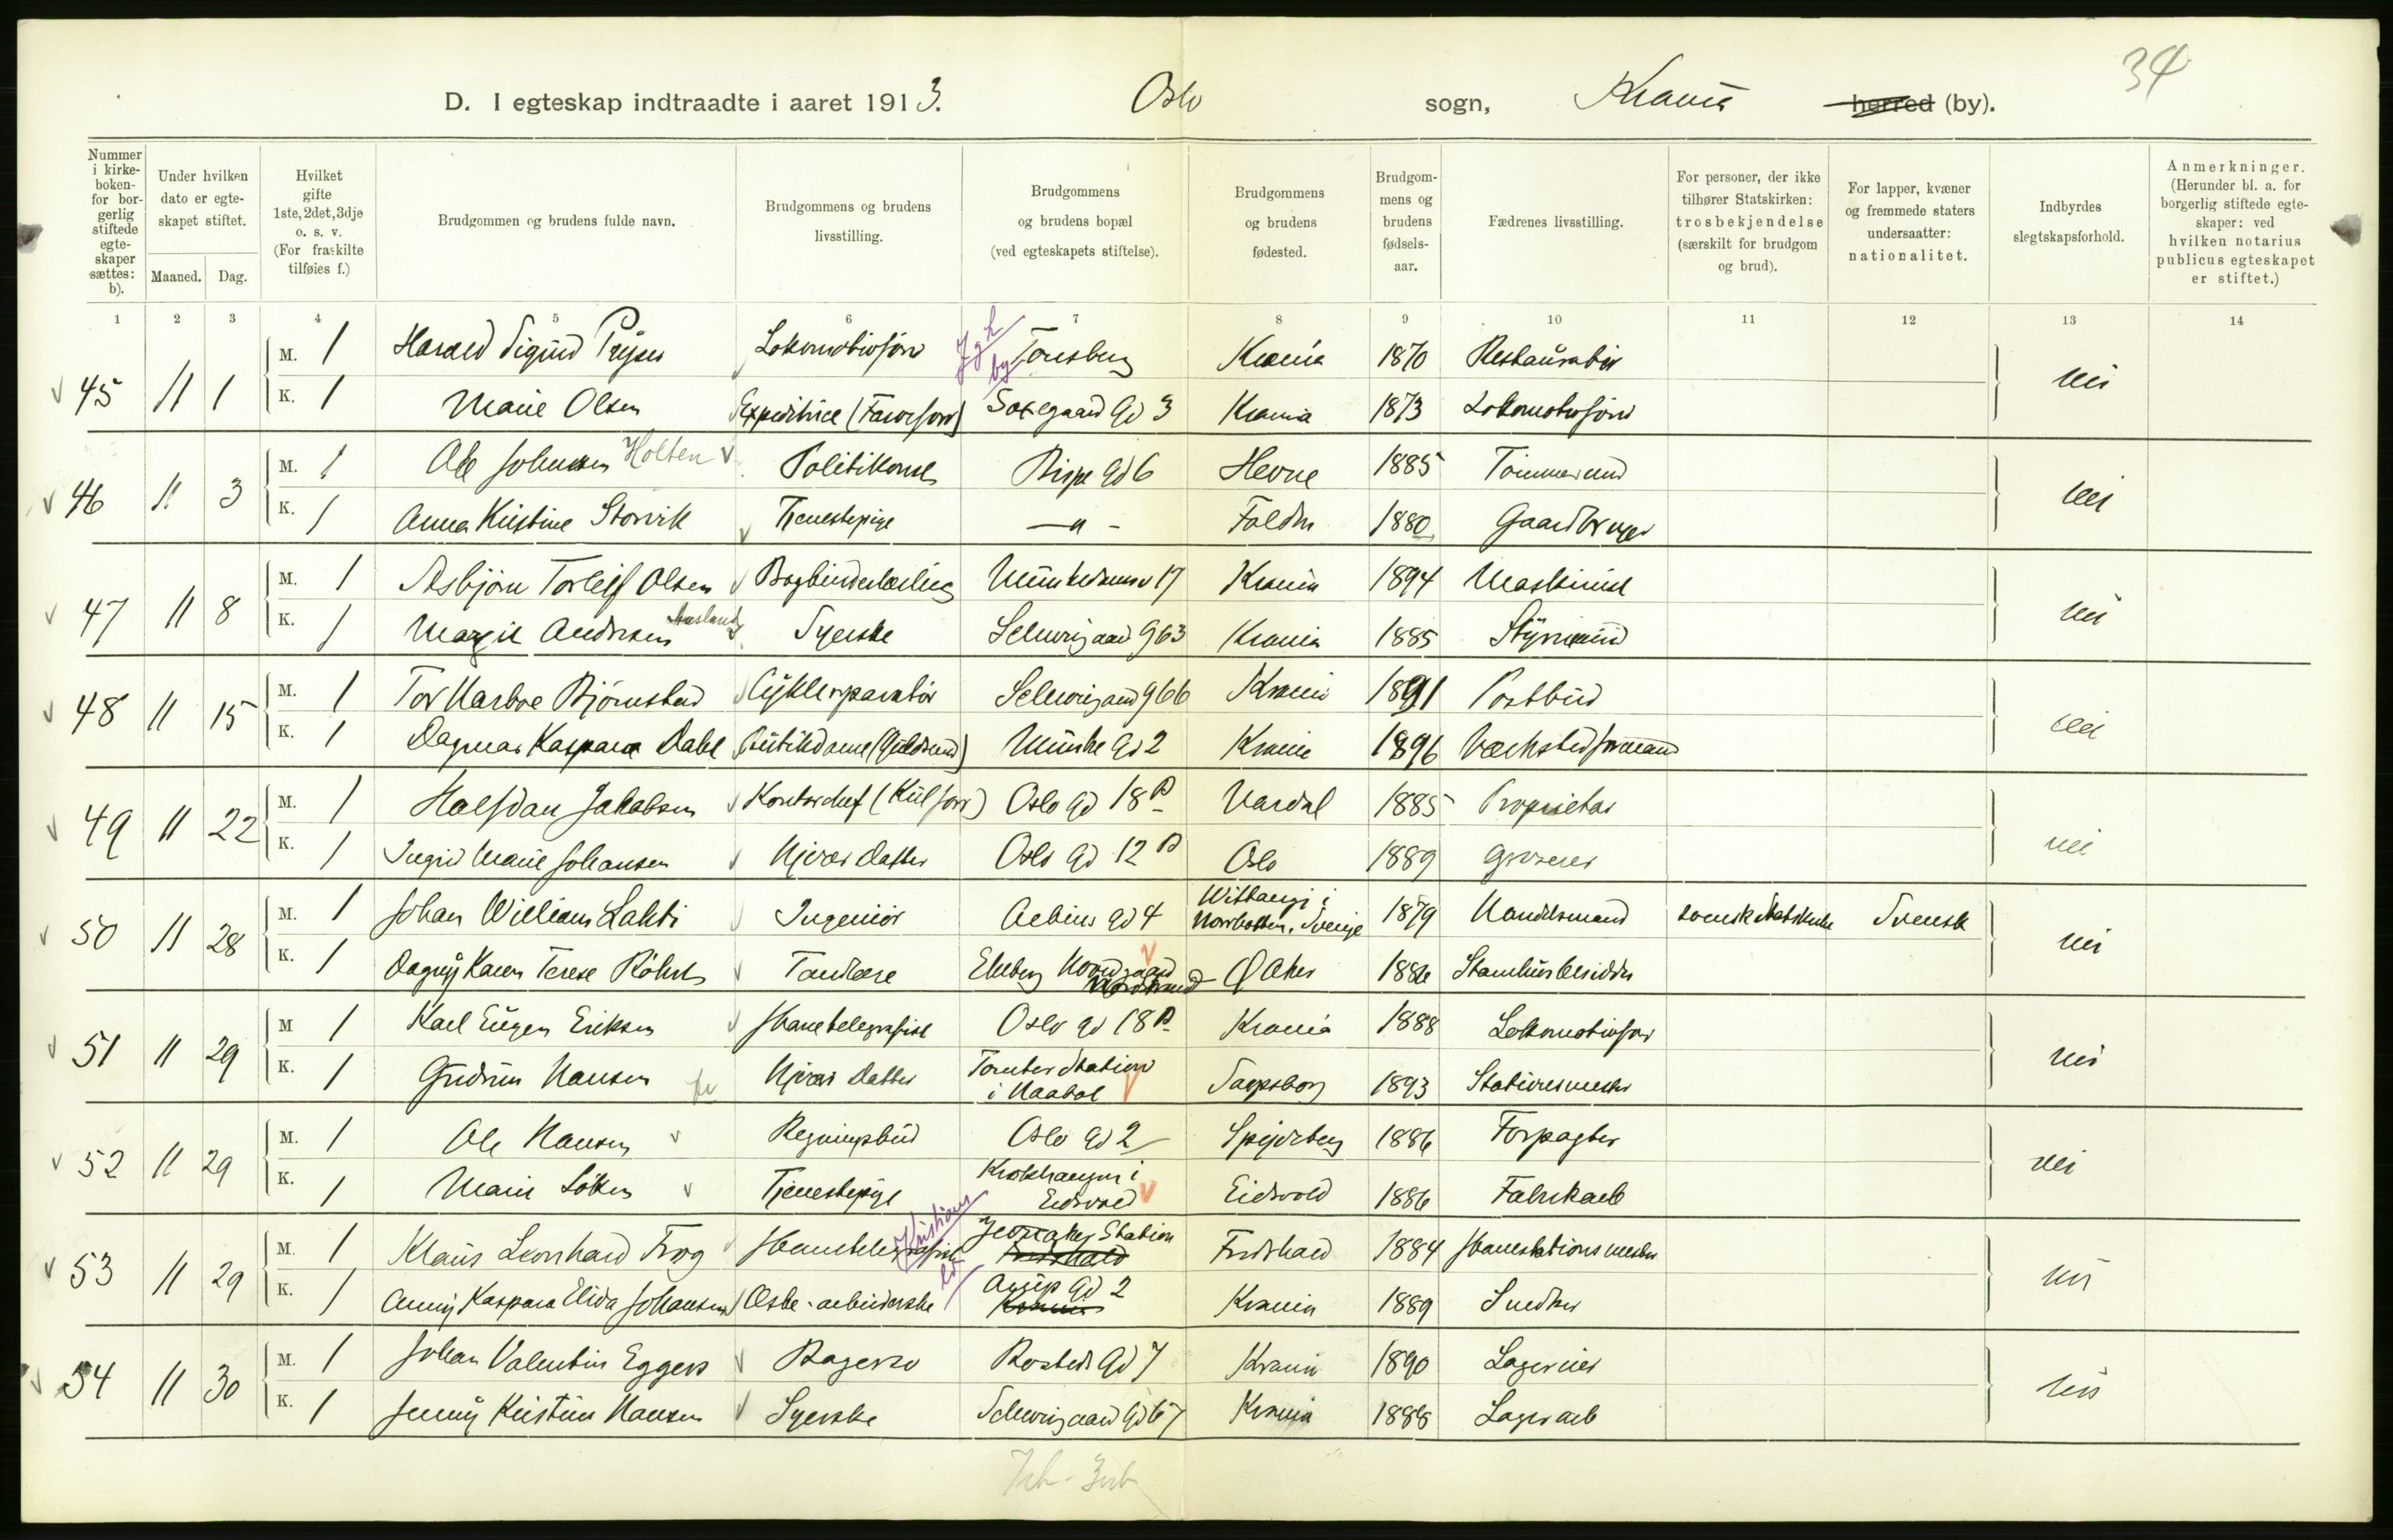 34
D. I egteskap indtraadte i aaret 1913. Oslo sogn, Krania herred (by).
Nummer i kirke-boken- for bor-gerlig stiftede egte-skaper sættes: b).
Under hvilken dato er egte-skapet stiftet.
Maaned. Dag.
Hvilket gifte 1ste, 2det, 3dje o. s. v. (For fraskilte tilføies f.)
Brudgommen og brudens fulde navn.
Brudgommens og brudens livsstilling.
Brudgommens og brudens bopæl (ved egteskapets stiftelse).
Brudgommens og brudens fødested.
Brudgom-mens og brudens fødsels-aar.
Fædrenes livsstilling.
For personer, der ikke tilhører Statskirken: trosbekjendelse (særskilt for brudgom og brud).
For lapper, kvæner og fremmede staters undersaatter: nationalitet.
Indbyrdes slegtskapsforhold.
Anmerkninger. (Herunder bl. a. for borgerlig stiftede egte-skaper: ved hvilken notarius publicus egteskapet er stiftet.)
1 2 3 4 5 6 7 8 9 10 11 12 13 14
45 11 1 M. 1 Harald Sigurd Pryser Lokomotivfører Tønsberg Krania 1870 Restauratør nei
K. 1 Marie Olsen Expeditrice (Farveforr) Saxegaard Gd 3 Krania 1873 Lokomotivfører
46 11 3 M. 1 Ole Johnsen Holten Politikonst Bispe Gd 6 Hevne 1885 Tømmermd nei
K. 1 Anna Kristine Storvik Tjenestepige — " - Folden 1880 Gaardbruger
47 11 8 M. 1 Asbjørn Torleif Olsen Bogbinderlærling Munkedamsv 17 Krania 1894 Maskinist nei
K. 1 Margit Andersen Aasland Syerske Schweigaard G 63 Krania 1885 Styrmand
48 11 15 M. 1 Tor Harboe Bjørnstad Cyklereparatør Schweigaard G 66 Krania 1891 Postbud nei
K. 1 Dagmar Kaspara Dahl Butikdame (Guldsmd) Munke Gd 2 Krania 1896 Værkstedformand
49 11 22 M. 1 Halfdan Jakobsen Kontorchef (Kulforr) Oslo Gd 18 B Vardal 1885 Proprietær nei
K. 1 Ingrid Marie Johansen Hjveær Datter Oslo Gd 12 B Oslo 1889 Grosserer
50 11 28 M. 1 Johan William Lahti Ingeniør Aebius Gd 4 Wittangi i Norrbotten, Sverige 1879 Handelsmand svensk statskirke Svensk nei
K. 1 Dagny Karen Terese Röhrt Tandlæge Ekeberg Hovedgaard Nordstrand Ø Aker 1886 Stamhusbesidder
51 11 29 M 1 Karl Eugen Eriksen Banetelegrafist Oslo gd 18 B Krania 1888 Lokomotivfør nei
K. 1 Gudrun Hansen Hjvær Datter Tomter Station i Haabøl Sarpsborg 1893 Stationsmester
52 11 29 M. 1 Ole Hansen Regningsbud Oslo Gd 2 Spydeberg 1886 Forpagter nei
K. 1 Marie Løken Tjenestepige Eidsvold Eidsvold 1886 Fabrikarb
53 11 29 M. 1 Klaus Leonhard Frog Banetelegrafist Station Fredrikshald Fredshald 1884 Banestationsmester nei
K. 1 Anny Kaspara Elida Johansen Æske-arbeiderske Arup Gd 2 Krania Krania 1889 Snedker
54 11 30 M. 1 Johan Valentin Eggers Bagersv Rosteds Gd 7 Krania 1890 Lagereier nei
K. 1 Jenny Kristine Hansen Syerske Schweigaard Gd 67 Krania 1888 Lagerarb